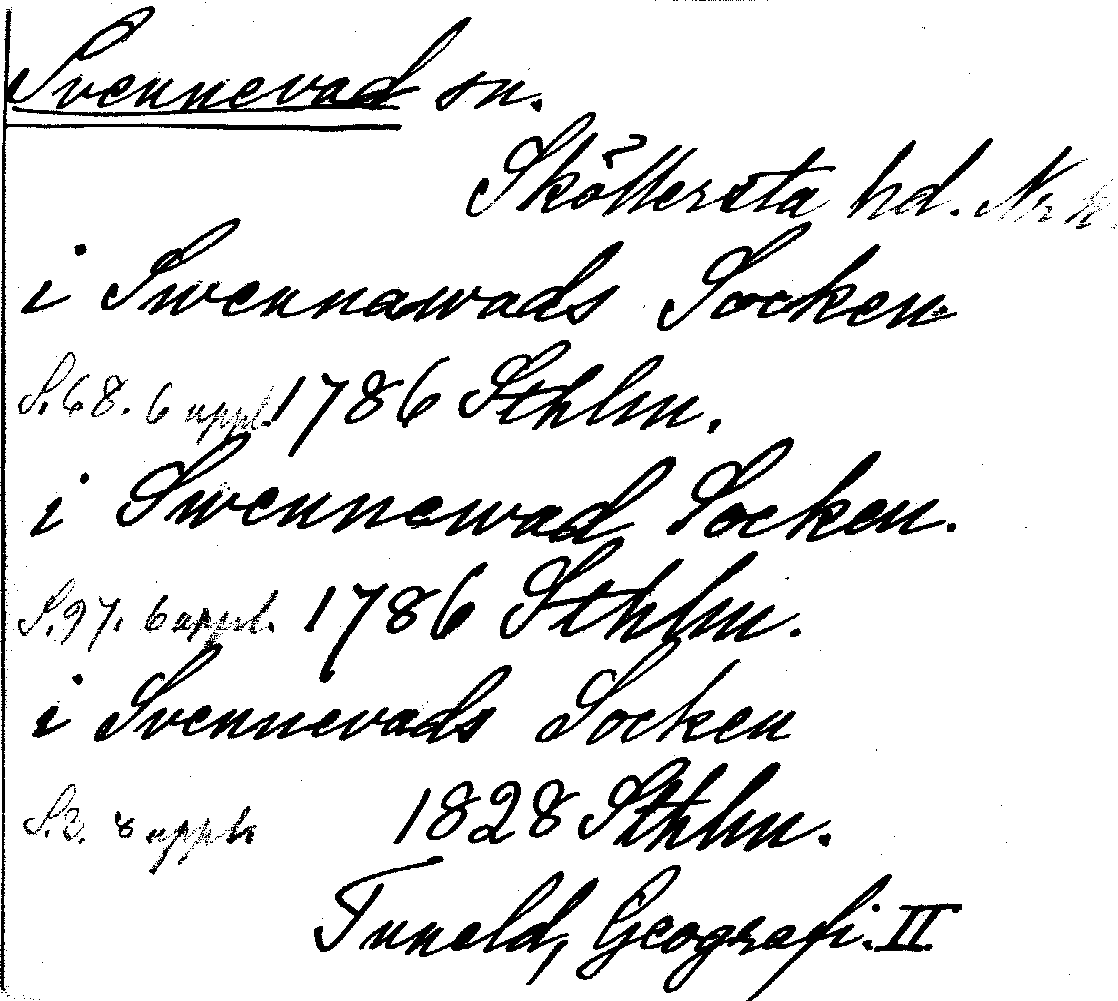 Svennevad sn.
Sköllersta hd. Nrk.
i Swennawads Socken.
S. 68. 6 uppl. 1786 Sthlm.
i Swennewad Socken.
S. 97. 6 uppl. 1786 Sthlm.
i Svennevads Socken
S. 3. 8 uppl. 1828 Sthlm.
Tuneld, Geografi. II